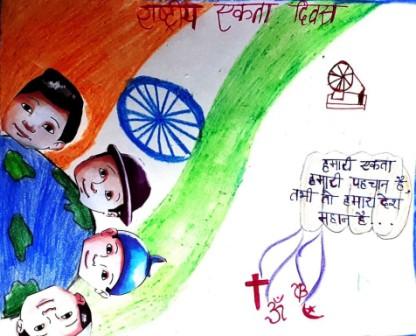 राष्ट्रीय एकता दिवस
हमारी एकता
हमारी पहचान है
तभी तो हमारा देश
महान है...
ॐ